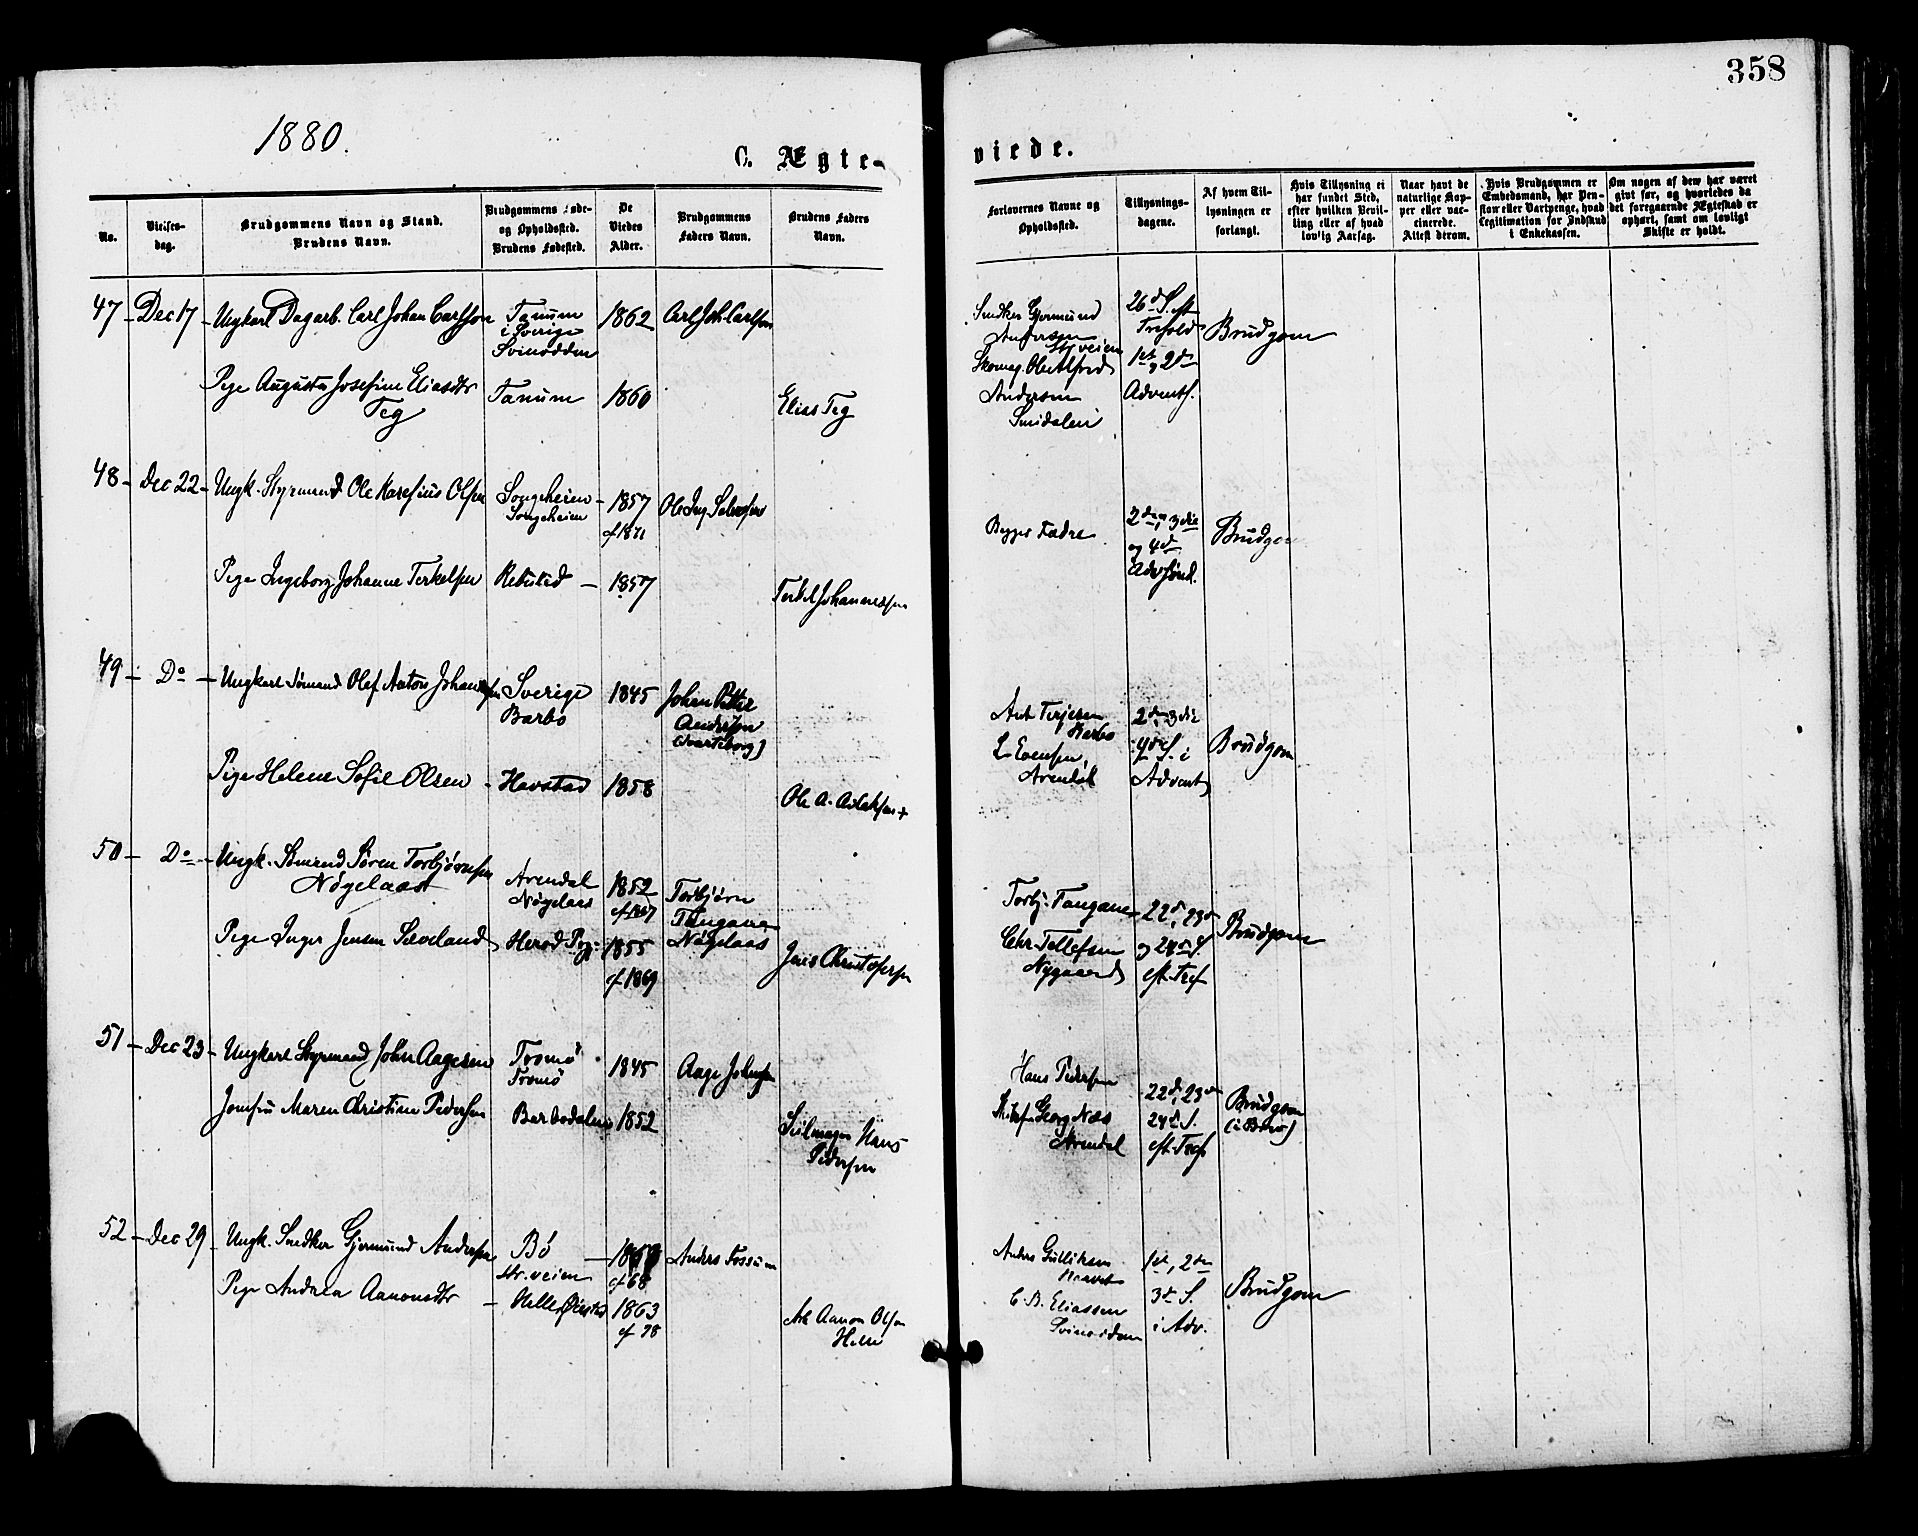 358
1880.
C. Ægte-
viede.
No.
Vielses-
dag.
Brudgommens Navn og Stand.
Brudens Navn.
Brudgommens Føde-
og Opholdssted.
Brudens Fødested.
De
Viedes
Alder.
Brudgommens
Faders Navn.
Brudens Faders
Navn.
Forlovernes Navne og
Opholdssted.
Tillysnings-
dagene.
Af hvem Til-
lysningen er
forlangt.
Hvis Tillysning ei
har fundet Sted,
efter hvilken Bevil-
ling eller af hvad
lovlig Aarsag.
Naar havt de
naturlige Kop-
per eller vac-
cinerede.
Attest derom.
Hvis Brudgommen er
Embedsmand, har Pen-
sion eller Vartpenge, hvad
Legitimation for Indskud
i Enkekassen.
Om nogen af dem har været
gift før, og hvorledes da
det foregaaende Ægteskab er
ophørt, samt om lovligt
Skifte er holdt.
47 Dec 17 Ungkarl Dagarb. Carl Johan Carlsson
Tanum
i Sverige
Svinodden
1862
Carl Joh. Carlson
Snedker Gjermund
Andersen
Str.veien
Skomag. Ole Alfred
Andersen
26d S. eft
Trefold
1ste, 2den
Advents.
Brudgom
Pige Augusta Josefine Eliasdtr
Teg
Tanum
1860
Elias Teg
48 Dec 22 Ungk. Styrmand Ole Olsen
Songeheien
Songeheien
1857
cf 1871
Begges Fædre
2den, 3die
og 4de
Adv. Sønd.
Brudgom
Pige Ingeborg Johanne Terkelsen
1857
Terkel Johannessen
49 Do Ungkarl Sømand Olef Anton Johansen
Sverige
Barbo
1845
Johan Petter
Andersson
Ant Terjesen
Barbo
L. Evensen,
Arendal
2den, 3die
4de S. i
Advent
Brudgom
Pige Helene Sofie Olsen
Havstad
1858
Ole A. Aslaksen +
50 Do Ungk. Sømand Søren Torbjørnsen
Nøgelaas
Arendal
Nøgelaas
1852
cf 1867
Torbjørn
Tangane
Nøgelaas
Torbj. Tangane
Chr. Tellefsen
Nygaard
22d, 23d
og 24de S.
eft. Tref
Brudgom
Pige Inger Jensen Sæveland
1855
cf 1869
Jens Christofersen
51 Dec 23 Ungkarl Styrmand John Aagesen
Tromø
Tromø
1845
Aage Johnsen
Hans Pedersen
Georg Næs
Arendal
22d, 23de
24d S.
eft. Tref
Brudgom
Jomfru Maren Christine Pedersen
Barbodalen
1852
Seilmager Hans
Pedersen
52 Dec 29 Ungk. Snedker Gjermund Andersen
Bø
Str.veien
cf 68
Anders Fossum
Anders Gulliksen
C. B. Eliassen
Svinodden
1ste, 2den
3d S.
i Adv.
Brudgom
Pige Andrea Aanonsdtr
Helle
1863
cf 78
Arb Aanon Olsen
Helle